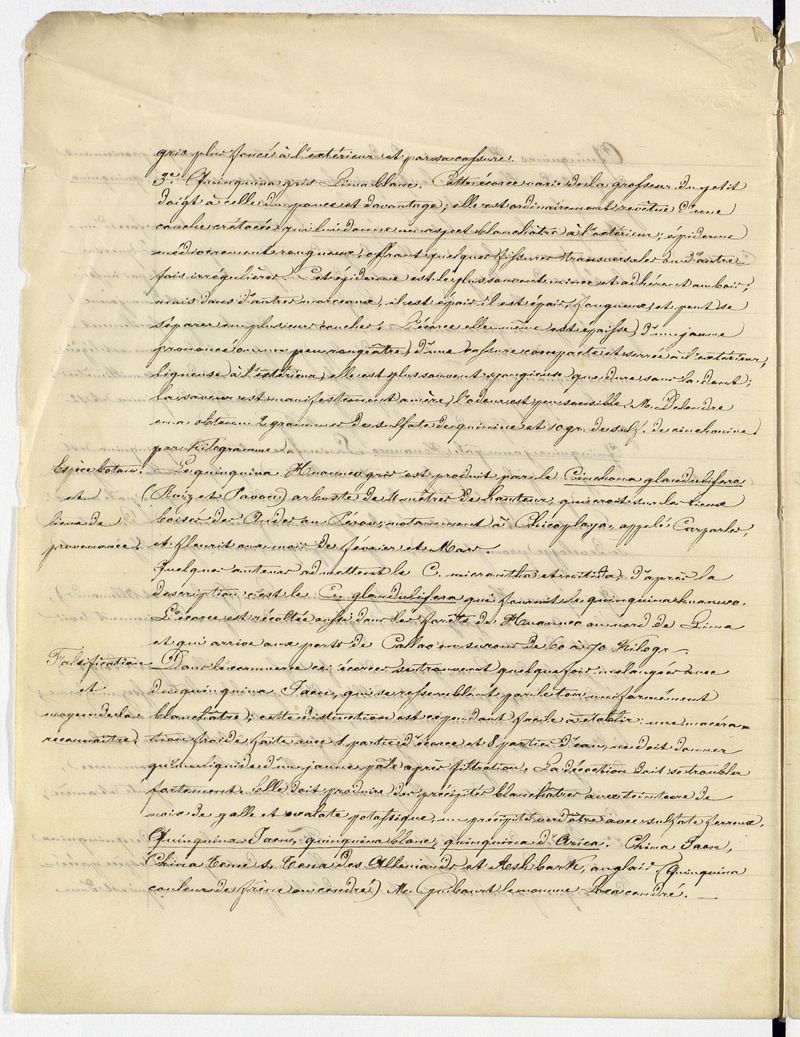 gris plus foncé à l'extérieur et par sa cassure.
3º. Quinquina gris Lima blanc. Cette écorce varie de la grosseur du petit
doigt à celle du pouce et davantage; elle est ordinairement revêtue d'une
couche crétacée qui lui donne un aspect blanchâtre à l'extérieur; épiderme
médiocrement rongueux, offrant quelques fissures transversales ou d'autre
fois irrégulières. Cet épiderme est le plus souvent mince et adhérent au bois;
mais dans d'autres morceaux, il est épais, il est épais, fongueux, et peut se
séparer en plusieurs couches. L'écorce elle même est épaisse, d'un jaune
prononcé ou un peu rongeâtre, d'une cassure compacte et serrée à l'extérieur,
ligneuse à l'extérieur, elle est plus souvent spongieuse que dure sous la dent;
la saveur est manifestement amère, l'odeur est peu sensible. Mr. Delondre
en a obtenu 2 grammes de sulfate de quinine et 10 gr. de sulf. de cinchonine
par Kilogramme.
Espèce botan. Le quinquina Huanuco gris est produit par le Cinchona glandulifera
et (Ruiz et Pavon) arbuste de mètres de hauteur, qui croit sur les lieux
lieux de boisés des Andes au Pérou, notamment à Chicoplaya, appelé
provenance. et fleurit aux mois de février et Mars.
Quelques auteurs admettent le C. micrantha et nitida, d'après la
description c'est le C. glandulifera qui fournit le quinquina huanuco.
L'écorce est récoltée aussi dans les forêts de Huanuco au nord de Lima
et qui arrive aux ports de Callao en surons de 60 à 70 Kilogr.
Falsification Dans le commerce ces écorces se trouvent quelquefois mélangées avec
et du quinquina Jaen, qui se ressemblent par le ton uniformément
moyen de la blanchâtre; cette distinction est cependant facile à établir: une macéra-
reconnaître. tion froide faite avec 1 partie d'écorce et 8 parties d'eau, ne doit donner
qu'un liquide d'un jaune pâle après filtration. La décoction doit se troubler
fortement. Elle doit produire des précipités blanchâtres avec teinture de
noix de galle et oxalate potassique, un précipité verdâtre avec sulfate ferreux.
Quinquina Jaen, quinquina blanc, quinquina d'Arica. China Jaen,
China Tenn s. Tena des Allemands et Ash bark, anglais (Quinquina
couleur de frêne ou cendré) Mr. Guibourt le nomme Loxa cendré.